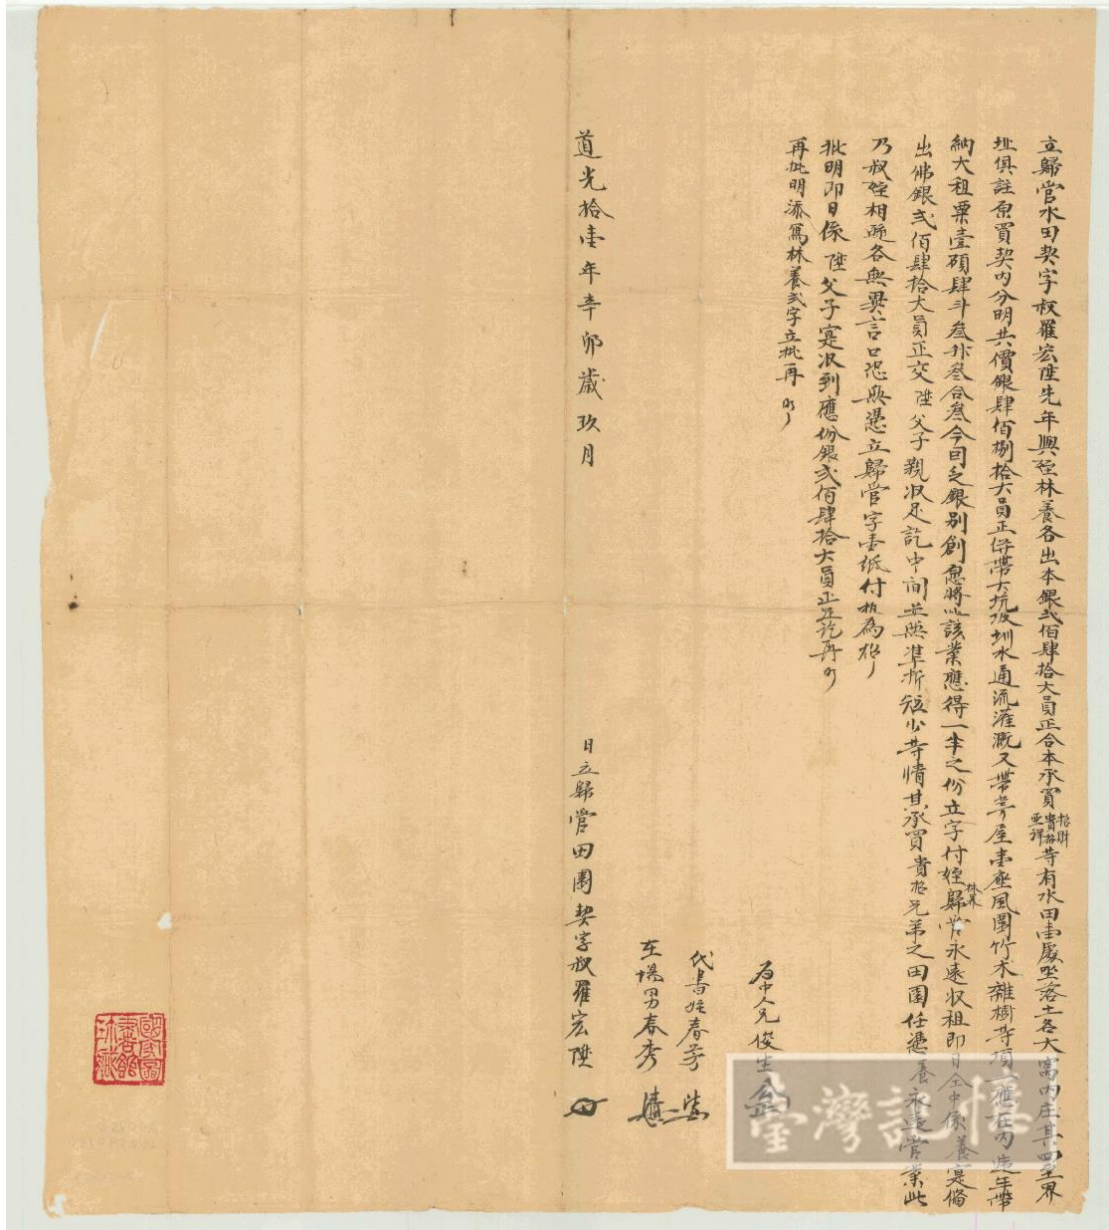 立歸管水田契字叔羅宏陞先年與姪林養各出本銀弍佰肆拾大員正合本承買等有水田壹處坐落土名大窩內庄其四至界
址俱註原買契內分明共價銀肆佰捌拾大員正併帶大坑陂圳水通流灌溉又帶茅屋壹座風圍竹木雜樹等項一應在內遞年帶
納大租粟壹碩肆斗叁升叁合叁今因乏銀別創愿將此該業應得一半之份立字付姪林养歸管永遠收租即日仝中係養寔備
出佛銀弍佰肆拾大員正交陞父子親收足訖中间並無準折短少等情甘承買貴招兄弟之田園任憑養永遠管業此
乃叔姪相迎各無異言口恐無憑立歸管字壹紙付执為炤
批明即日係陞父子寔收到應份銀弍佰肆拾大員正足訖再炤
再批明添寫林養弍字立批再炤
為中人兄俊生
代書姪春芳
在塲男春秀
道光拾壹年辛卯歲玖月 日立歸管田園契字叔羅宏陞
國家圖書館珍藏
臺灣記憶